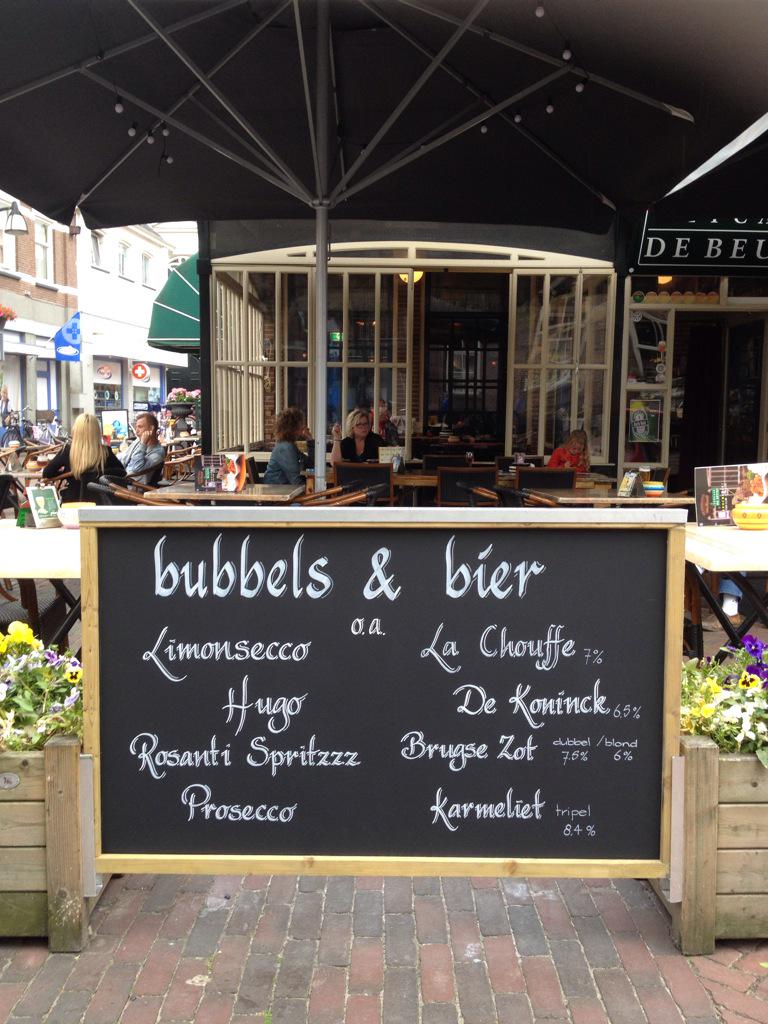 DE BEU
bubbels & bier
o.a.
Limonsecco
Hugo
Rosanti Spritzzz
Prosecco
La Chouffe 7%
De Koninck 6.5%
Brugse Zot dubbel / blond
7.5% 6%
Karmeliet tripel
8.4%